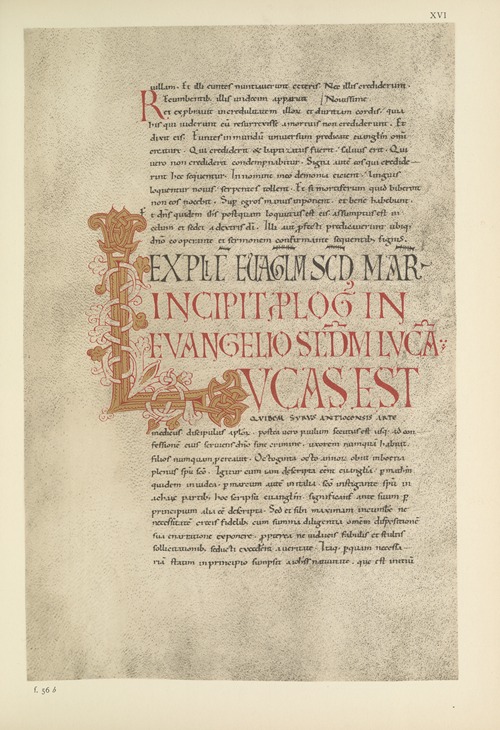 XVI
illam. Et illi euntes nuntiaverunt ceteris. Nec illis crediderunt.
Recumbentib; illis undecim apparuit Novissime
et exprobravit incredulitatem illoꝝ et duritiam cordis. quia
his qui viderant eū resurrexisse a mortuis non crediderunt. Et
dixit eis. Euntes in mundū universum predicate evangłm omī
creature. Qui crediderit & baptizatus fuerit. salvus erit. Qui
vero non crediderit condempnabitur. Signa autē eos qui credide–
rint hec sequentur. In nomine meo demonia eicient. linguis
loquentur novis. serpentes tollent. Et si mortiferum quid biberint
non eos nocebit. Sup egros manus inponent. et bene habebunt.
Et dn̄s quidem ih̄s postquam loquutus est eis. assumptus est in
celum et sedet a dextris dī. Illi autē pfecti predicaverunt ubiq;
dn̄o cooperante et sermonem confirmante sequentib; signis.
EXPLIT̄ EVAGLM SCD̄ MAR
INCIPIT PLOG IN
EVANGELIO SCD̄M LVCĀ
LVCAS EST
QVIDEM SYRVS ANTIOCENSIS ARTE
medicus discipulus aploꝝ. postea vero paulum secutus est usq; ad con
fessionē eius serviens dn̄o sine crimine. uxorem numquā habuit.
filios numquam pcreavit. Octoginta octo annoꝝ obiit in bithinia
plenus spū scō. Igitur cum iam descripta eēnt evanglia. p matheū
quidem in iudea. p marcum autē in italia. scō instigante spū in
achaie partib; hoc scripsit evanglīm. significans ante suum p
principium alia eē descripta. Sed et sibi maximam incumbe ne
necessitatē grecis fidelib; cum summa diligentia omēm dispositionē
sua enarratione exponere. ppterea ne iudaicis fabulis et stultis
sollicitationib; seducti excederent a veritate. Itaq; pquam necessa–
riā statim in principio sumpsit a iohīs nativitate. que est initiū
f. 56 b